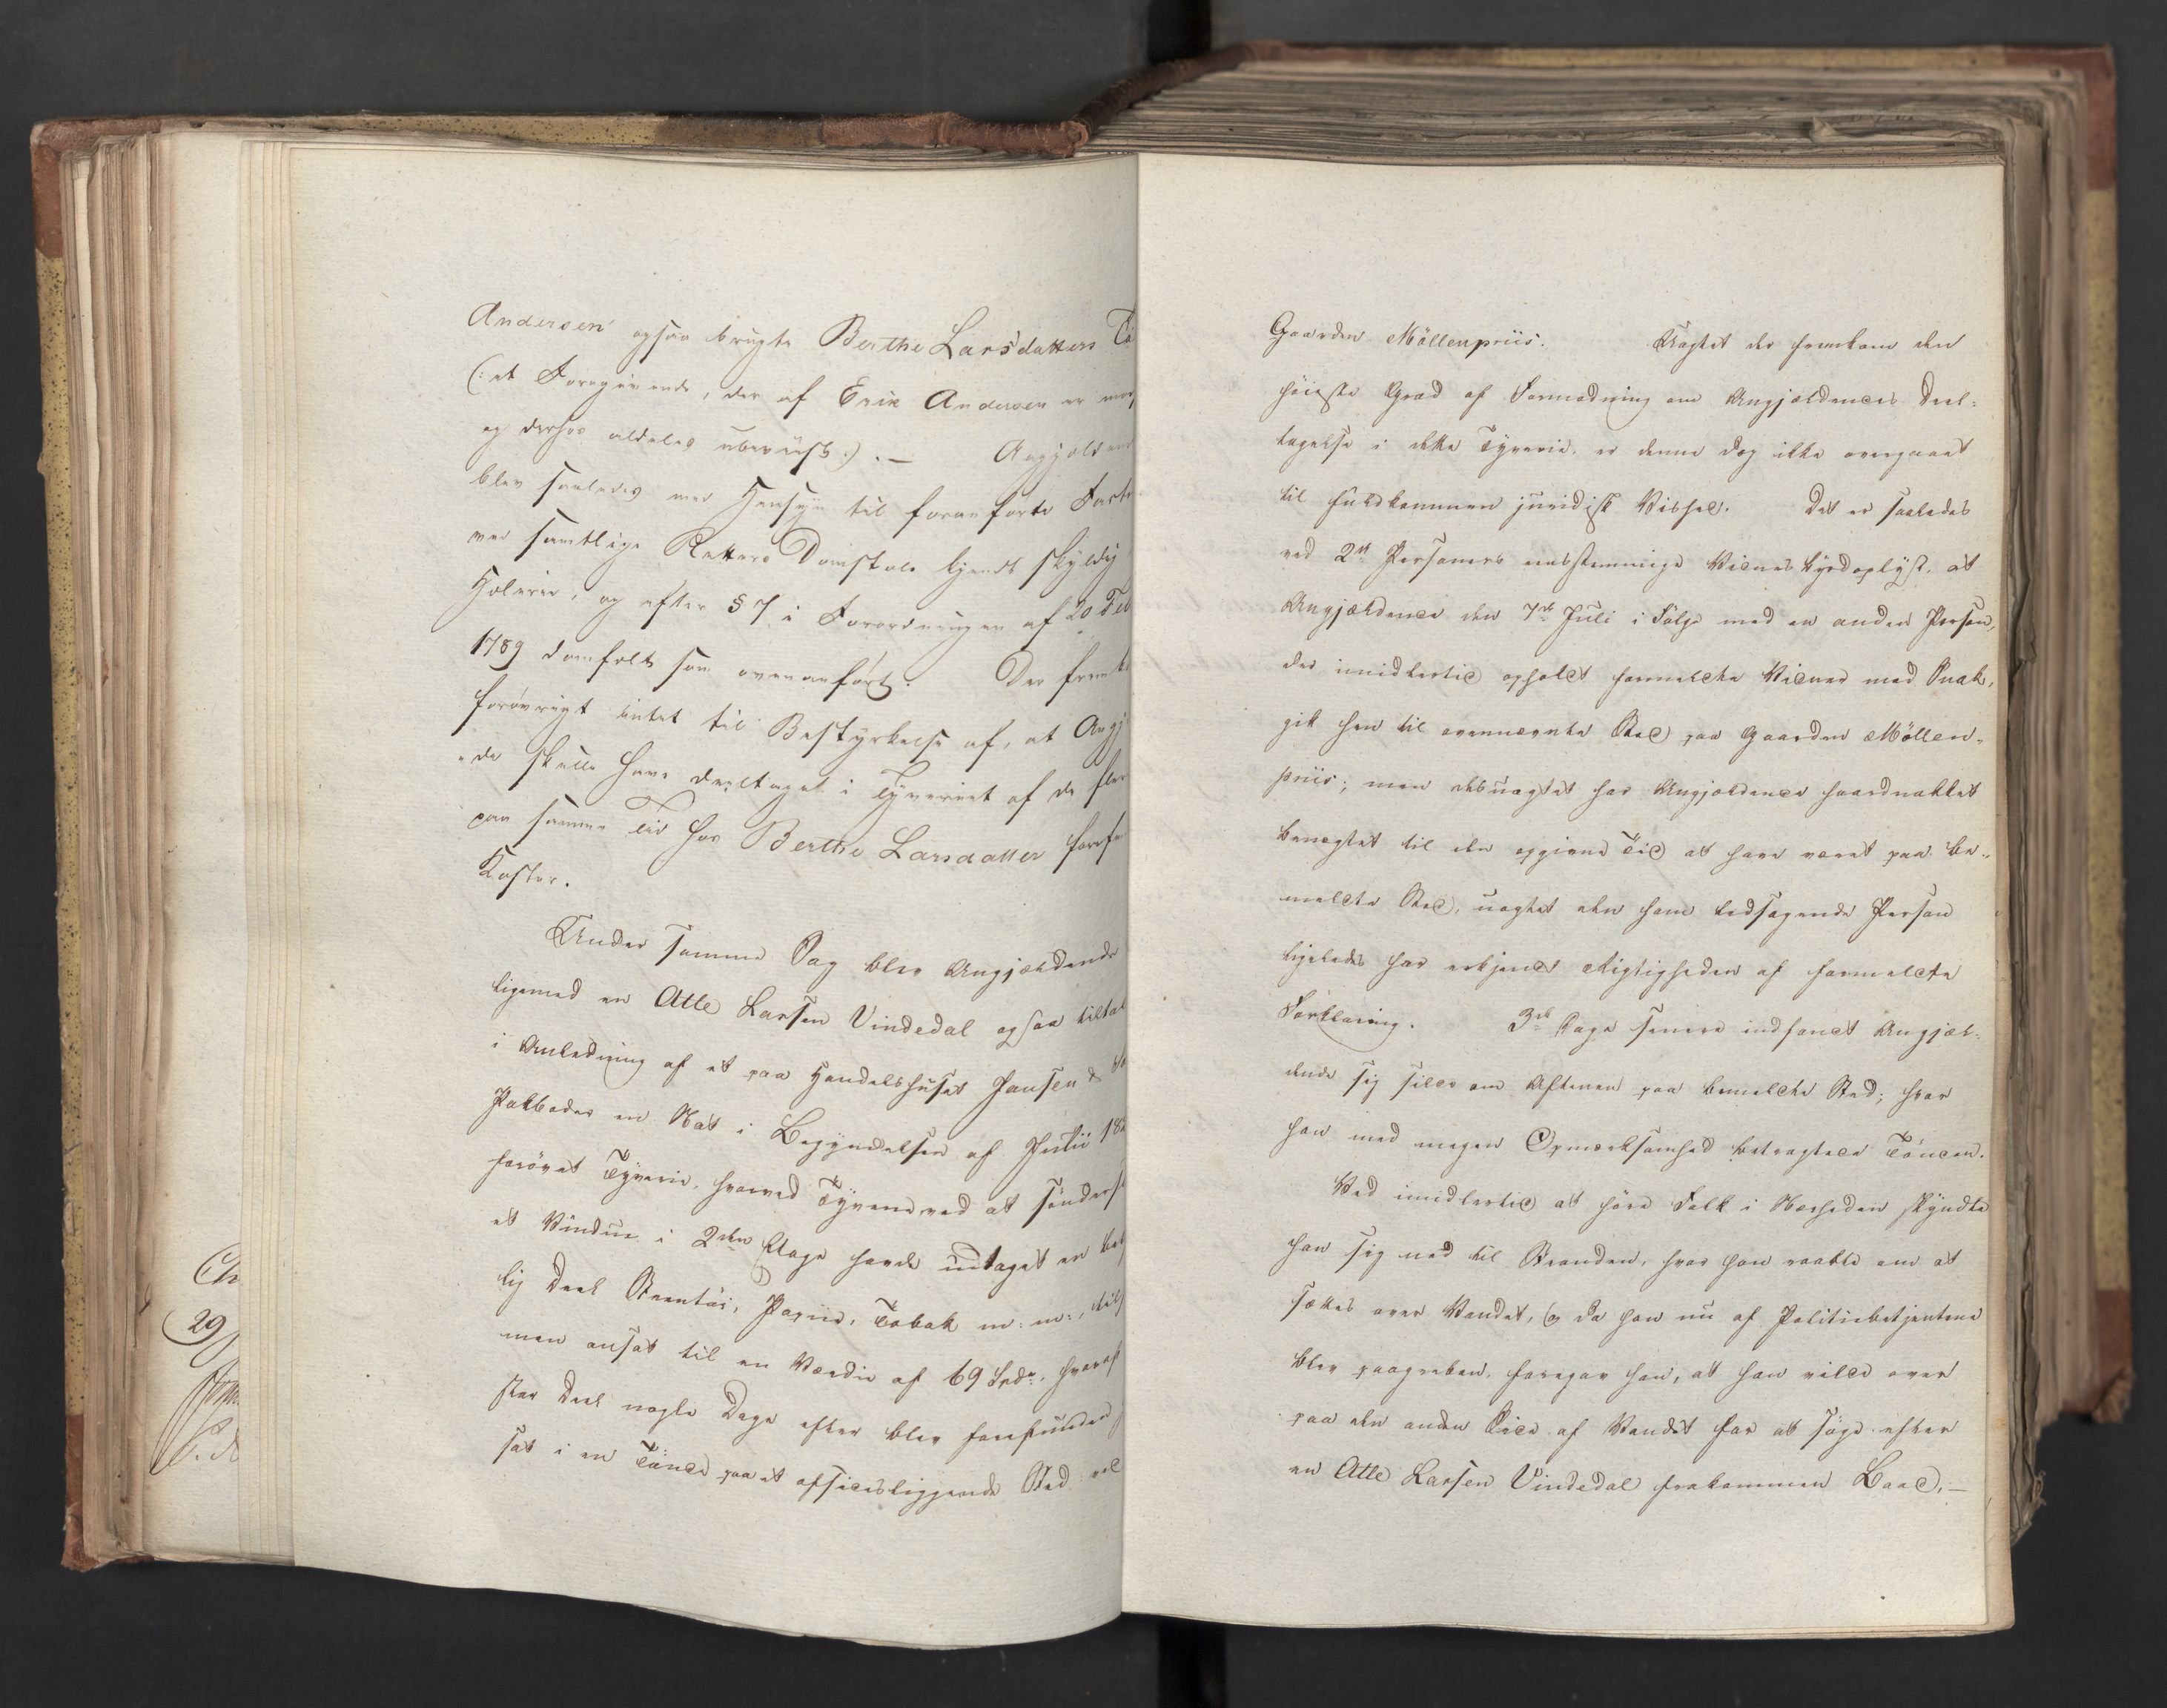 Andersen ogsaa brugte Berthe Larsdatters
(: et Foregivende, der af Erik Andersen er
og derhos aldeles ubeviist :). — Angjeld
blev saaledes med Hensyn til foranførte
ved samtlige Retters Domstole kjendt skyldig
Hæleri, og efter § 7 i Forordningen af 20 Feb
1789 domfældt som ovenanført. Der fremk
forøvrigt intet til Bestyrkelse af, at Angj
de skulle have deeltaget i Tyveriet af de fle
paa samme Tid hos Berthe Larsdatter
Koster.
Under samme Sag blev Angjældende
ligemed en Atle Larsen Vindedal ogsaa tiltal
i Anledning af et paa Handelshuset Jansen &
Pakboder en Nat i Begyndelsen af Julii 18
forøvet Tyverie, hvorved Tyvene ved at sønders
et Vindue i 2den Etage havde udtaget en
lig Deel Steentøi, Papiir, Tobak m: m:,
men ansat til en Værdie af 69 Spd., hvoraf
stor Deel nogle Dage efter blev forefunden
sat i en Tönde paa et afsidesliggende Sted ved
Gaarden Möllenpriis. Uagtet der fremkom den
høieste Grad af Formodning om Angjældendes Deel-
tagelse i dette Tyverie, er denne dog ikke overgaaet
til fuldkommen juridisk Vished. Det er saaledes
ved 2de Personers eensstemmige Vidnesbyrd oplyst, at
Angjældende den 7de Juli i Følge med en anden Person,
der imidlertid opholdt formeldte Vidner med Snak,
gik hen til ovennævnte Sted paa Gaarden Möllen-
priis; men desuagtet har Angjældende haardnakket
benægtet til den opgivne Tid at have været paa be-
meldte Sted, uagtet den ham ledsagende Person
ligeledes har erkjendt Rigtigheden af formeldte
Forklaring. 3de Dage senere indfandt Angjæl-
dende sig silde om Aftenen paa bemeldte Sted; hvor
han med megen Opmærksomhed betragtede Tönden.
Ved imidlertid at høre Folk i Nærheden skyndte
han sig ned til Stranden, hvor han raabte om at
sættes over Vandet, og da han nu af Politiebetjentene
blev paagreben, foregav han, at han vilde over
paa den anden Side af Vandet for at søge efter
en Atle Larsen Vindedal frakommen Baad. —
29